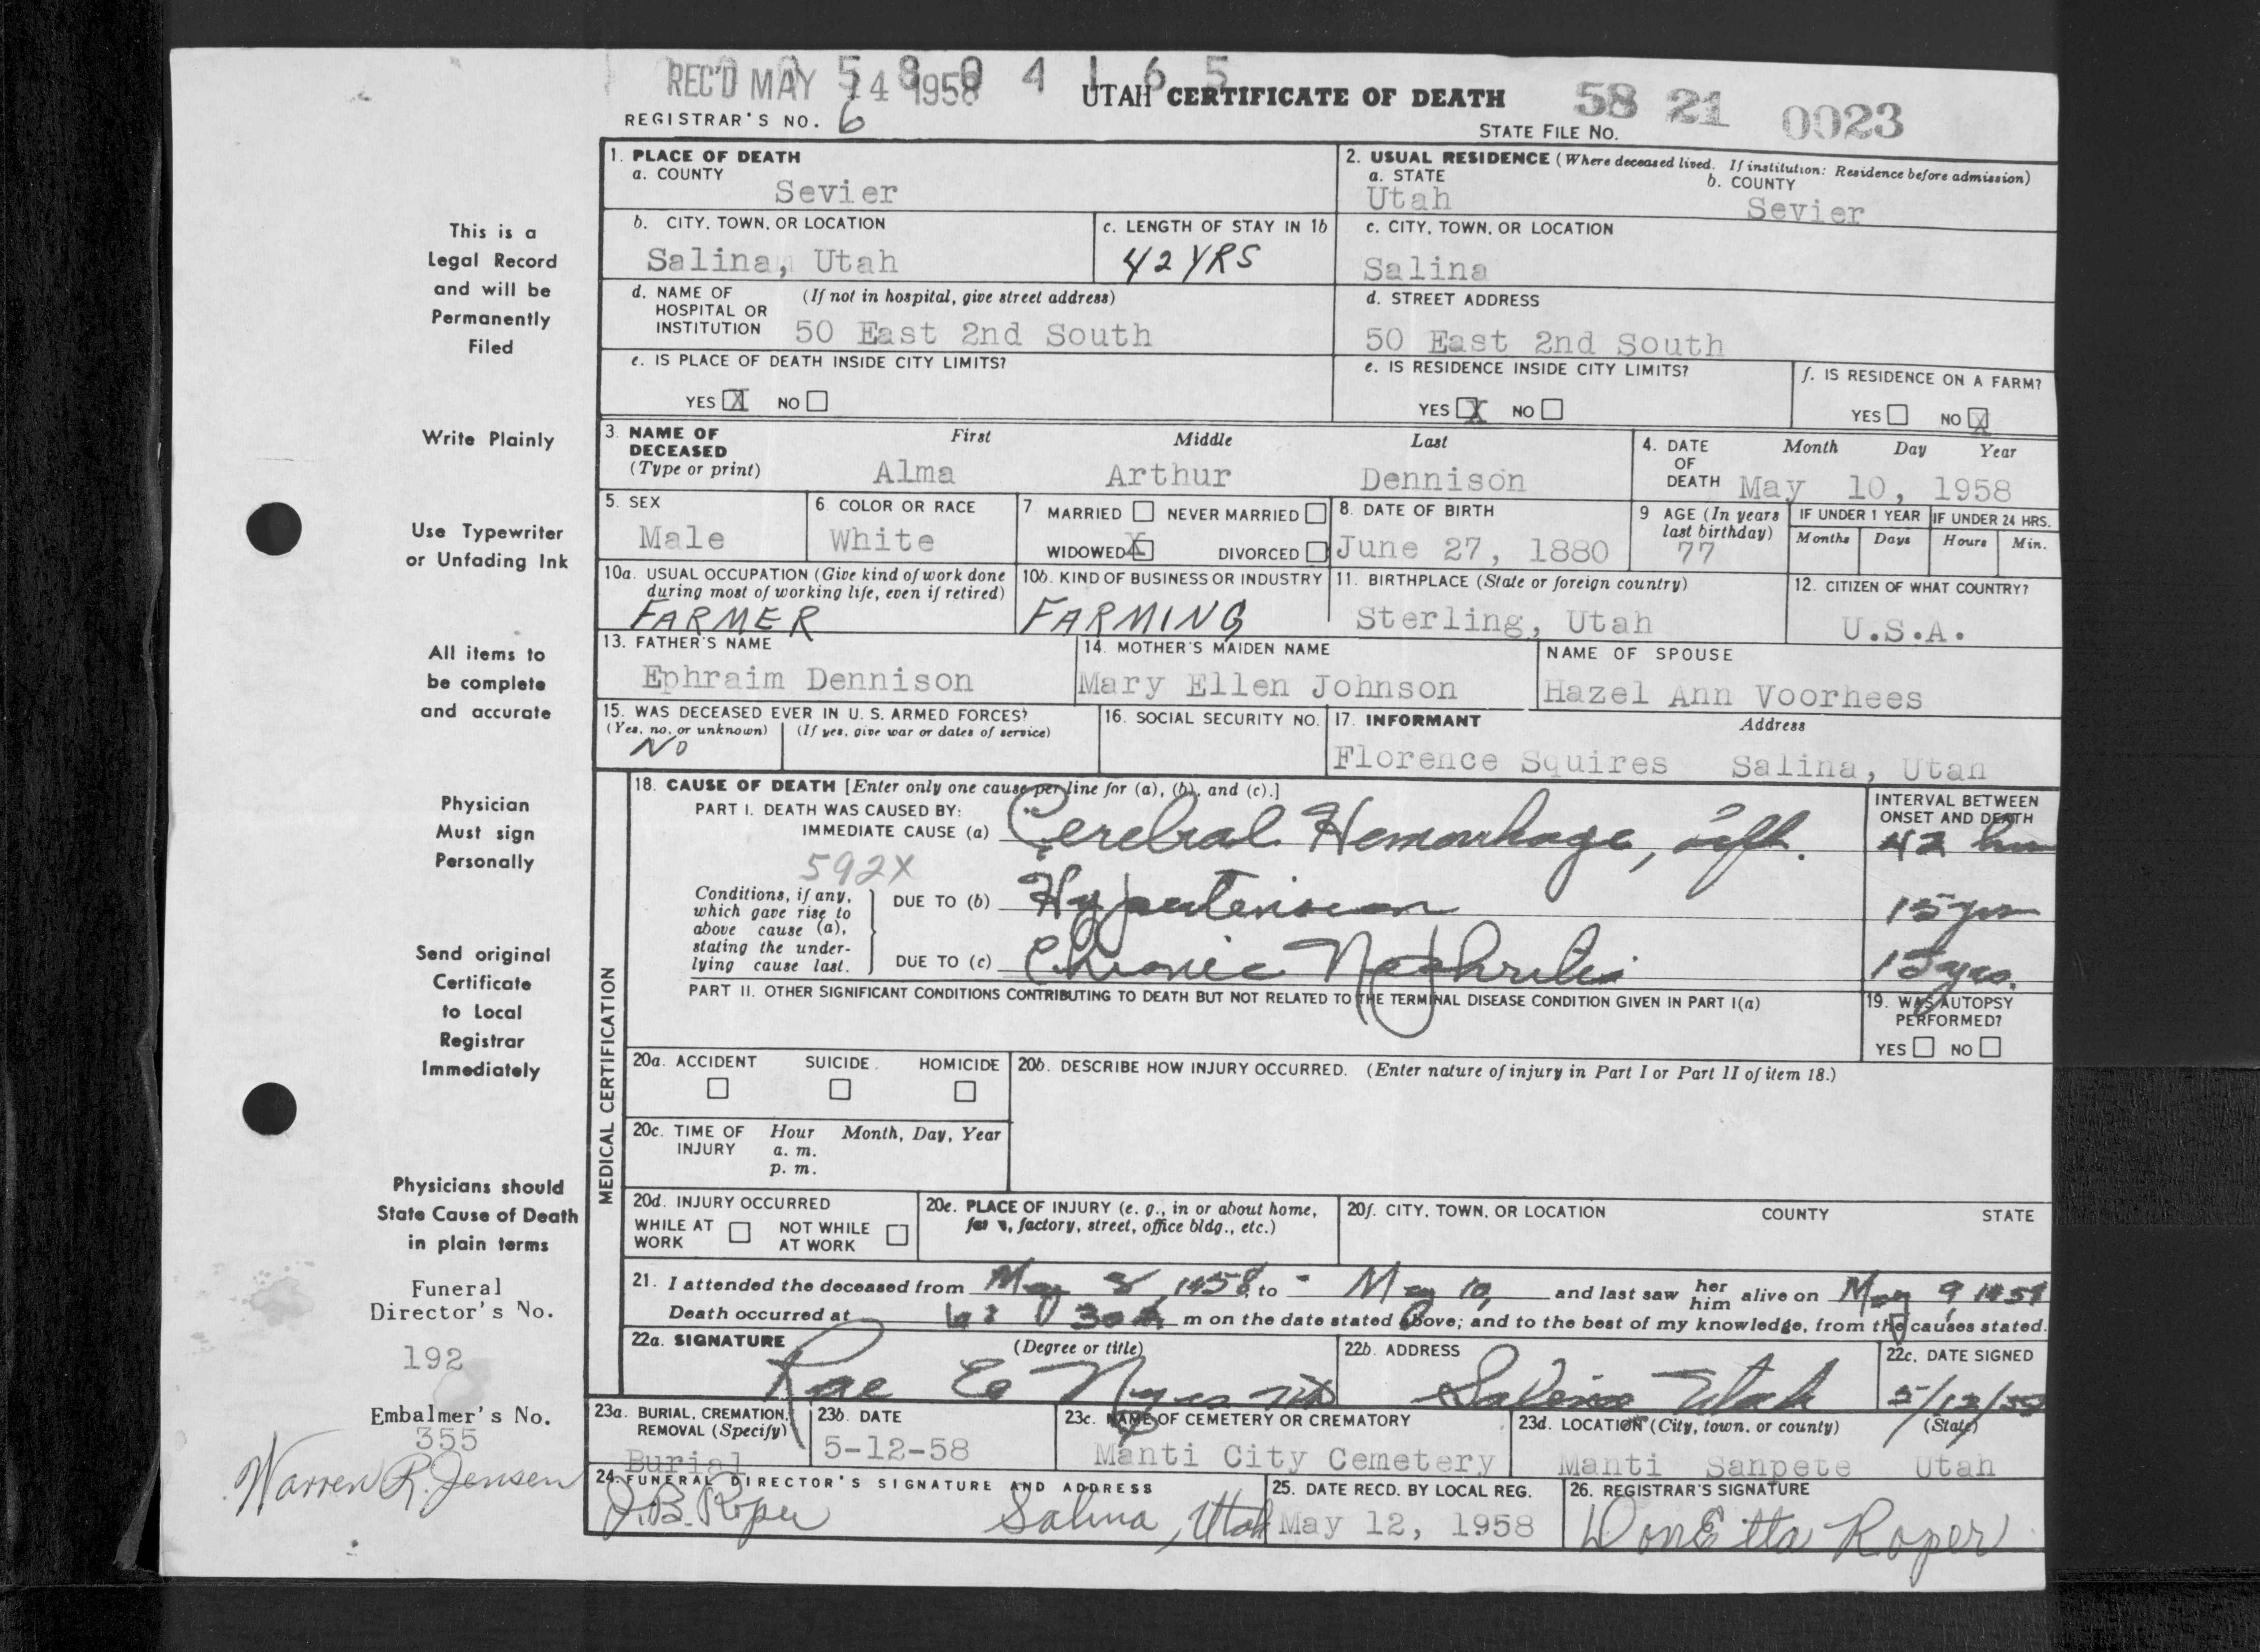 REC'D MAY 14 1958
58 04165
UTAH CERTIFICATE OF DEATH
58 21 0023
REGISTRAR'S NO. 6
STATE FILE NO.
This is a
Legal Record
and will be
Permanently
Filed
Write Plainly
Use Typewriter
or Unfading Ink
All items to
be complete
and accurate
Physician
Must sign
Personally
Send original
Certificate
to Local
Registrar
Immediately
Physicians should
State Cause of Death
in plain terms
Funeral
Director's No.
192
Embalmer's No.
355
Warren R. Jensen
1. PLACE OF DEATH
a. COUNTY
Sevier
2. USUAL RESIDENCE (Where deceased lived. If institution: Residence before admission)
a. STATE b. COUNTY
Utah Sevier
b. CITY, TOWN, OR LOCATION
Salina, Utah
c. LENGTH OF STAY IN 1b
42 YRS
c. CITY, TOWN, OR LOCATION
Salina
d. NAME OF (If not in hospital, give street address)
HOSPITAL OR
INSTITUTION 50 East 2nd South
d. STREET ADDRESS
50 East 2nd South
e. IS PLACE OF DEATH INSIDE CITY LIMITS?
YES X NO
e. IS RESIDENCE INSIDE CITY LIMITS?
YES X NO
f. IS RESIDENCE ON A FARM?
YES NO X
3. NAME OF First Middle Last
DECEASED
(Type or print) Alma Arthur Dennison
4. DATE Month Day Year
OF
DEATH May 10, 1958
5. SEX
Male
6. COLOR OR RACE
White
7. MARRIED NEVER MARRIED
WIDOWED X DIVORCED
8. DATE OF BIRTH
June 27, 1880
9 AGE (In years
last birthday)
77
IF UNDER 1 YEAR IF UNDER 24 HRS.
Months Days Hours Min.
10a. USUAL OCCUPATION (Give kind of work done
during most of working life, even if retired)
FARMER
10b. KIND OF BUSINESS OR INDUSTRY
FARMING
11. BIRTHPLACE (State or foreign country)
Sterling, Utah
12. CITIZEN OF WHAT COUNTRY?
U.S.A.
13. FATHER'S NAME
Ephraim Dennison
14. MOTHER'S MAIDEN NAME
Mary Ellen Johnson
NAME OF SPOUSE
Hazel Ann Voorhees
15. WAS DECEASED EVER IN U. S. ARMED FORCES?
(Yes, no, or unknown) (If yes, give war or dates of service)
NO
16. SOCIAL SECURITY NO.
17. INFORMANT Address
Florence Squires Salina, Utah
MEDICAL CERTIFICATION
18. CAUSE OF DEATH [Enter only one cause per line for (a), (b), and (c).]
INTERVAL BETWEEN
ONSET AND DEATH
PART I. DEATH WAS CAUSED BY:
IMMEDIATE CAUSE (a) Cerebral Hemorrhage, 42 hrs
592X
Conditions, if any,
which gave rise to
above cause (a),
stating the under-
lying cause last.
DUE TO (b) Hypertension 15 yrs
DUE TO (c) Chronic Nephritis 15 yrs.
PART II. OTHER SIGNIFICANT CONDITIONS CONTRIBUTING TO DEATH BUT NOT RELATED TO THE TERMINAL DISEASE CONDITION GIVEN IN PART I(a)
19. WAS AUTOPSY
PERFORMED?
YES NO
20a. ACCIDENT SUICIDE HOMICIDE
20b. DESCRIBE HOW INJURY OCCURRED. (Enter nature of injury in Part I or Part II of item 18.)
20c. TIME OF Hour Month, Day, Year
INJURY a. m.
p. m.
20d. INJURY OCCURRED
WHILE AT NOT WHILE
WORK AT WORK
20e. PLACE OF INJURY (e. g., in or about home,
farm, factory, street, office bldg., etc.)
20f. CITY, TOWN, OR LOCATION COUNTY STATE
21. I attended the deceased from May 8, 1958, to May 10, and last saw her him alive on May 9, 1958
Death occurred at 6:30 a m on the date stated above; and to the best of my knowledge, from the causes stated.
22a. SIGNATURE (Degree or title)
Rae E Noyes MD
22b. ADDRESS
Salina Utah
22c. DATE SIGNED
5/12/58
23a. BURIAL, CREMATION,
REMOVAL (Specify)
Burial
23b. DATE
5-12-58
23c. NAME OF CEMETERY OR CREMATORY
Manti City Cemetery
23d. LOCATION (City, town, or county) (State)
Manti Sanpete Utah
24. FUNERAL DIRECTOR'S SIGNATURE AND ADDRESS
J.B. Roper Salina, Utah
25. DATE RECD. BY LOCAL REG.
May 12, 1958
26. REGISTRAR'S SIGNATURE
DonEtta Roper